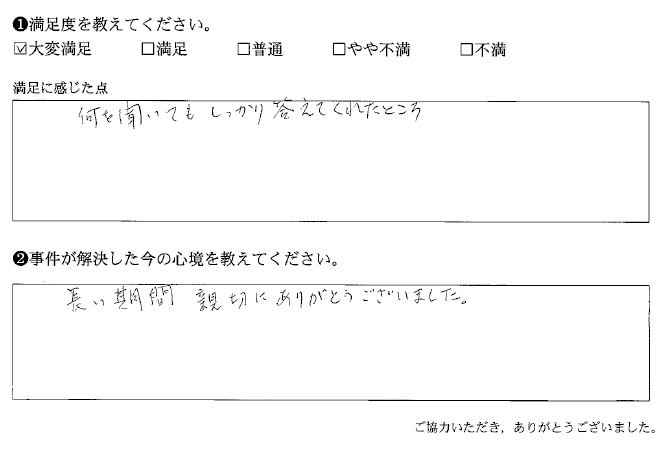 ❶満足度を教えてください。
☑大変満足 □満足 □普通 □やや不満 □不満
満足に感じた点
何を聞いてもしっかり答えてくれたところ
❷事件が解決した今の心境を教えてください。
長い期間 親切にありがとうございました。
ご協力いただき，ありがとうございました。